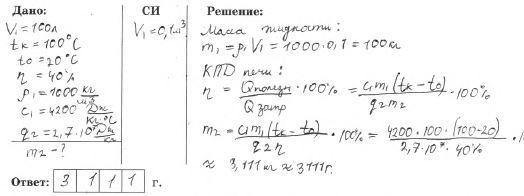 Дано:
V₁=100л
tк=100°C
t₀=20°C
η=40%
ρ₁=1000 кг/м³
c₁=4200 Дж/кг·°C
q₂=2,7·10⁷ Дж/кг
m₂-?
СИ
V₁=0,1м³
Решение:
Масса жидкости:
m₁=ρ₁V₁=1000·0,1=100кг
КПД печи:
η = Qполезн/Qзатр · 100% = c₁m₁(tк-t₀)/q₂m₂ · 100%
m₂ = c₁m₁(tк-t₀)/q₂η · 100% = 4200·100·(100-20)/2,7·10⁷·40% ·1
≈ 3,111кг ≈ 3111г.
Ответ: 3 1 1 1 г.